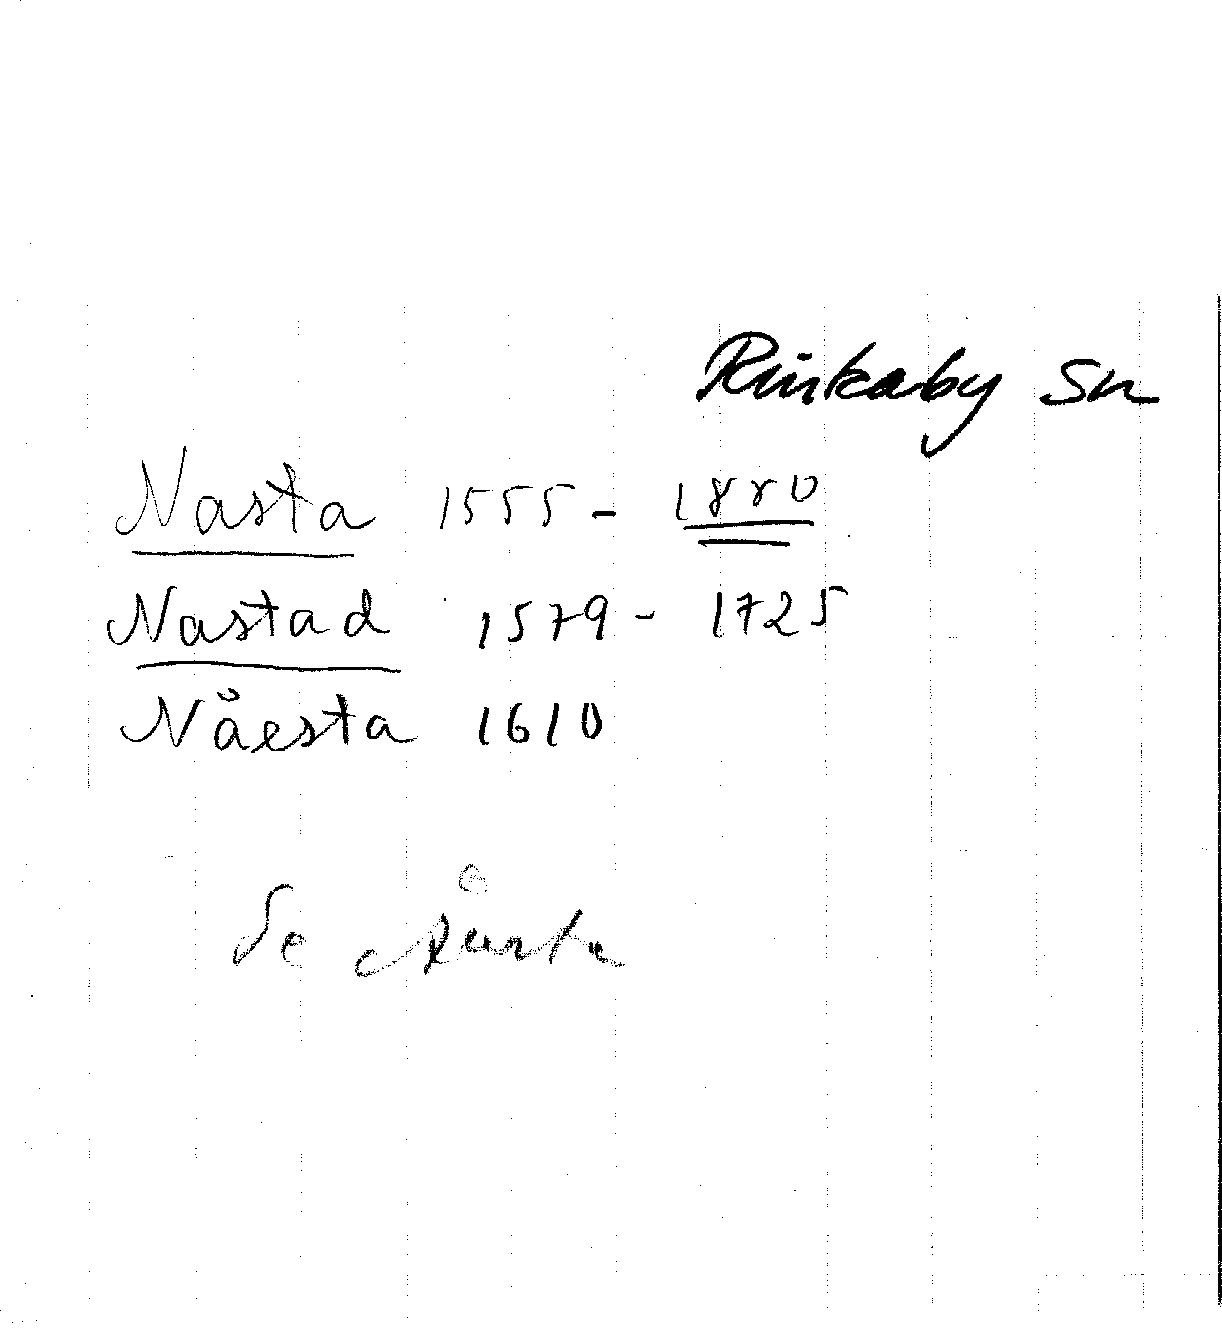 Rinkaby sn
Nasta 1555 - 1880
Nastad 1579 - 1725
Nåesta 1610
Se